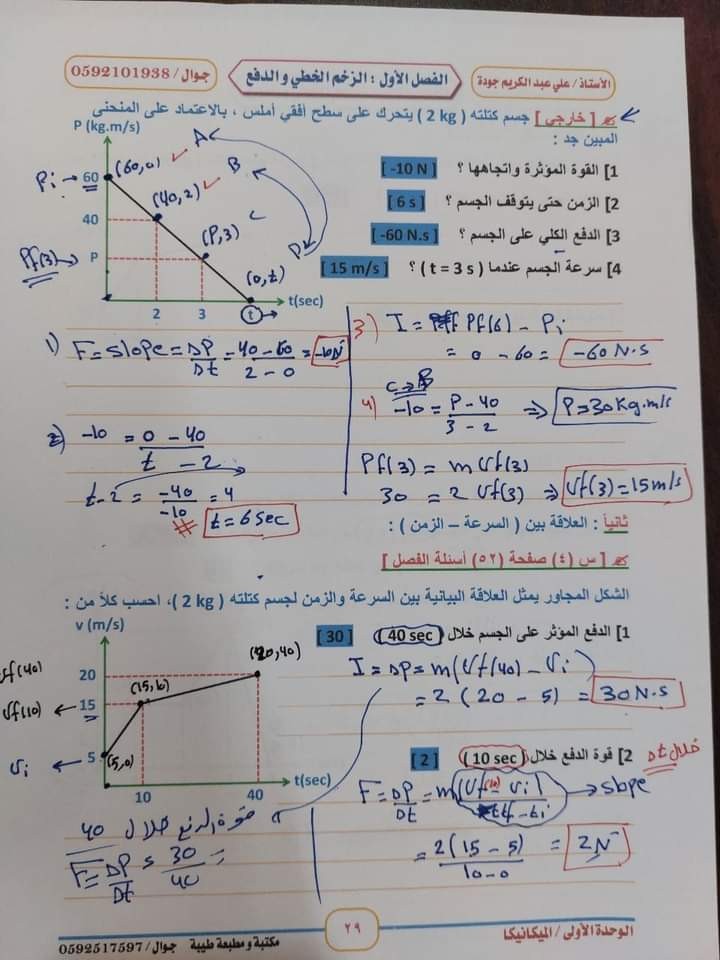 الأستاذ/ علي عبد الكريم جودة
الفصل الأول : الزخم الخطي و الدفع
جوال/ 0592101938
[ خارجي ] جسم كتلته ( 2 kg ) يتحرك على سطح أفقي أملس ، بالاعتماد على المنحنى
المبين جد :
P (kg.m/s)
1] القوة المؤثرة واتجاهها ؟ [ -10 N ]
2] الزمن حتى يتوقف الجسم ؟ [ 6 s ]
3] الدفع الكلي على الجسم ؟ [ -60 N.s ]
4] سرعة الجسم عندما ( t = 3 s ) ؟ [ 15 m/s ]
Pi → 60 (60,0) A
40 (40,2) B
Pf(3) → P (P,3) C
(0,t) D
2 3 t t(sec)
1) F = slope = ΔP/Δt = 40 - 60 / 2 - 0 = -10N
2) -10 = 0 - 40 / t - 2
t - 2 = -40 / -10 = 4
t = 6 Sec
3) I = Pf(6) - Pi
= 0 - 60 = -60 N.S
C → B
4) -10 = P - 40 / 3 - 2 ⇒ P = 30 Kg.m/s
Pf(3) = m Vf(3)
30 = 2 Vf(3) ⇒ Vf(3) = 15 m/s
ثانياً : العلاقة بين ( السرعة – الزمن ) :
[ س (٤) صفحة (٥٢) أسئلة الفصل ]
الشكل المجاور يمثل العلاقة البيانية بين السرعة والزمن لجسم كتلته ( 2 kg )، احسب كلاً من :
v (m/s)
1] الدفع المؤثر على الجسم خلال ( 40 sec ) [ 30 ]
I = ΔP = m(Vf(40) - Vi)
= 2 ( 20 - 5 ) = 30 N.S
Vf(40) 20 (20,40)
Vf(10) ← 15 (15,10)
Vi ← 5 (5,0)
10 40 t(sec)
2] قوة الدفع خلال ( 10 sec ) [ 2 ]
خلال Δt
F = ΔP/Δt = m(Vf(10) - Vi) / tf - ti → slope
= 2(15 - 5) / 10 - 0 = 2N
قوة الدفع خلال 40
F = ΔP/Δt = 30/40 =
الوحدة الأولى/ الميكانيكا
٢٩
مكتبة و مطبعة طيبة جوال/ 0592517597